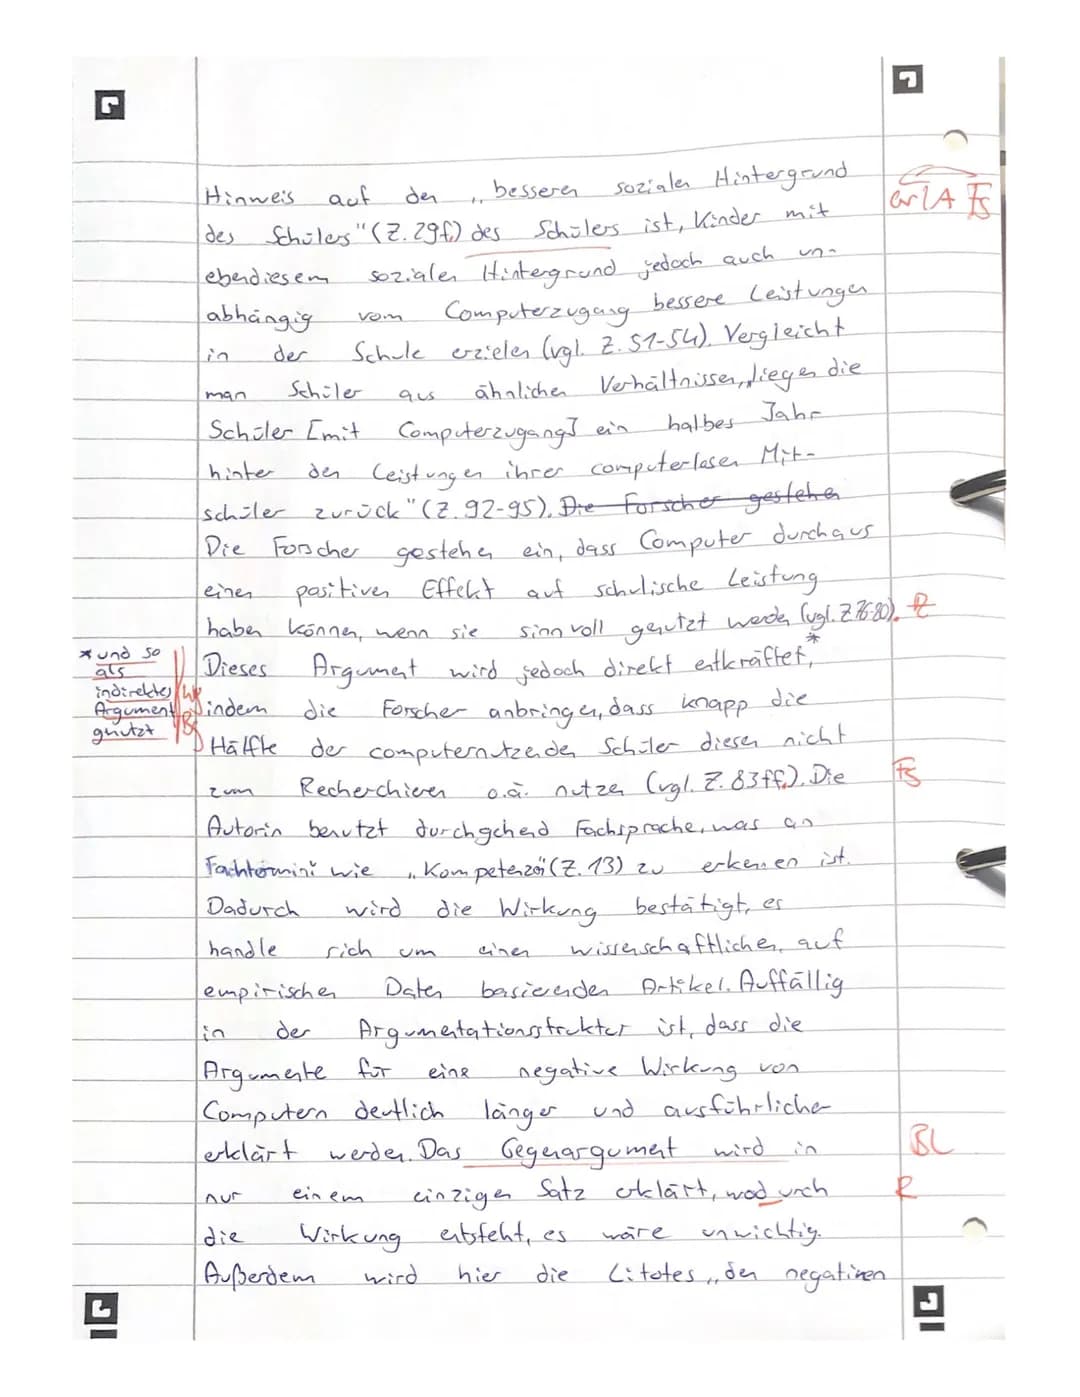 Hinweis auf den „besseren sozialen Hintergrund
des Schülers" (Z. 29f.) des Schülers ist, Kinder mit
ebendiesem sozialen Hintergrund jedoch auch un-
abhängig vom Computerzugang bessere Leistungen
in der Schule erzielen (vgl. Z. 51-54). Vergleicht
man Schüler aus ähnlichen Verhältnissen, „liegen die
Schüler [mit Computerzugang] ein halbes Jahr
hinter den Leistungen ihrer computerlosen Mit-
schüler zurück" (Z. 92-95). Die Forscher gestehen
Die Forscher gestehen ein, dass Computer durchaus
einen positiven Effekt auf schulische Leistung
haben können, wenn sie sinnvoll genutzt werden (vgl. Z. 76-80). R
Dieses Argument wird jedoch direkt entkräftet,*
* und so
als
indirektes
Argument
gnutzt
indem die Forscher anbringen, dass knapp die
Hälfte der computernutzenden Schüler diesen nicht
zum Recherchieren o.ä. nutzen (vgl. Z. 83ff.). Die
Fs
Autorin benutzt durchgehend Fachsprache, was an
Fachtermini wie „Kompetenzen" (Z. 13) zu erkennen ist.
Dadurch wird die Wirkung bestätigt, es
handle sich um einen wissenschaftlichen, auf
empirischen Daten basierenden Artikel. Auffällig
in der Argumentationsstruktur ist, dass die
Argumente für eine negative Wirkung von
Computern deutlich länger und ausführlicher
erklärt werden. Das Gegenargument wird in
BL
nur einem einzigen Satz erklärt, wodurch
R
die Wirkung entsteht, es wäre unwichtig.
Außerdem wird hier die Litotes „den negativen